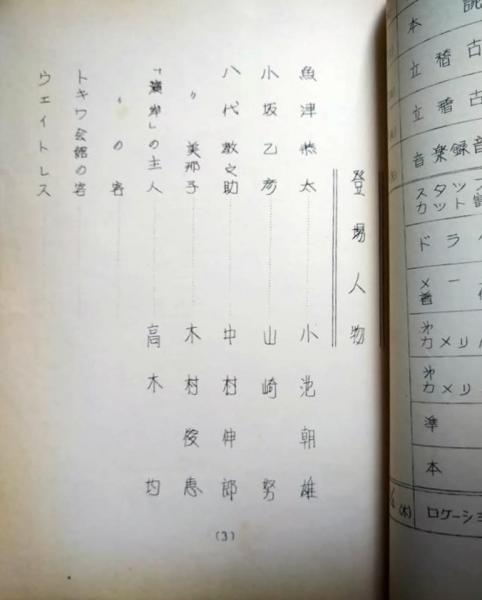 本読
立稽古
立稽古
音楽録音
スタッフ
カット割
ドラ
メー
着
カメリハ
カメリ
準
本
(木) ロケーショ
登場人物
魚津恭太 小池朝雄
小坂乙彦 山崎努
八代教之助 中村伸郎
〃 美那子 木村俊恵
「濱岸」の主人 高木均
〃 の客
トキワ会館の客
ウェイトレス
(3)